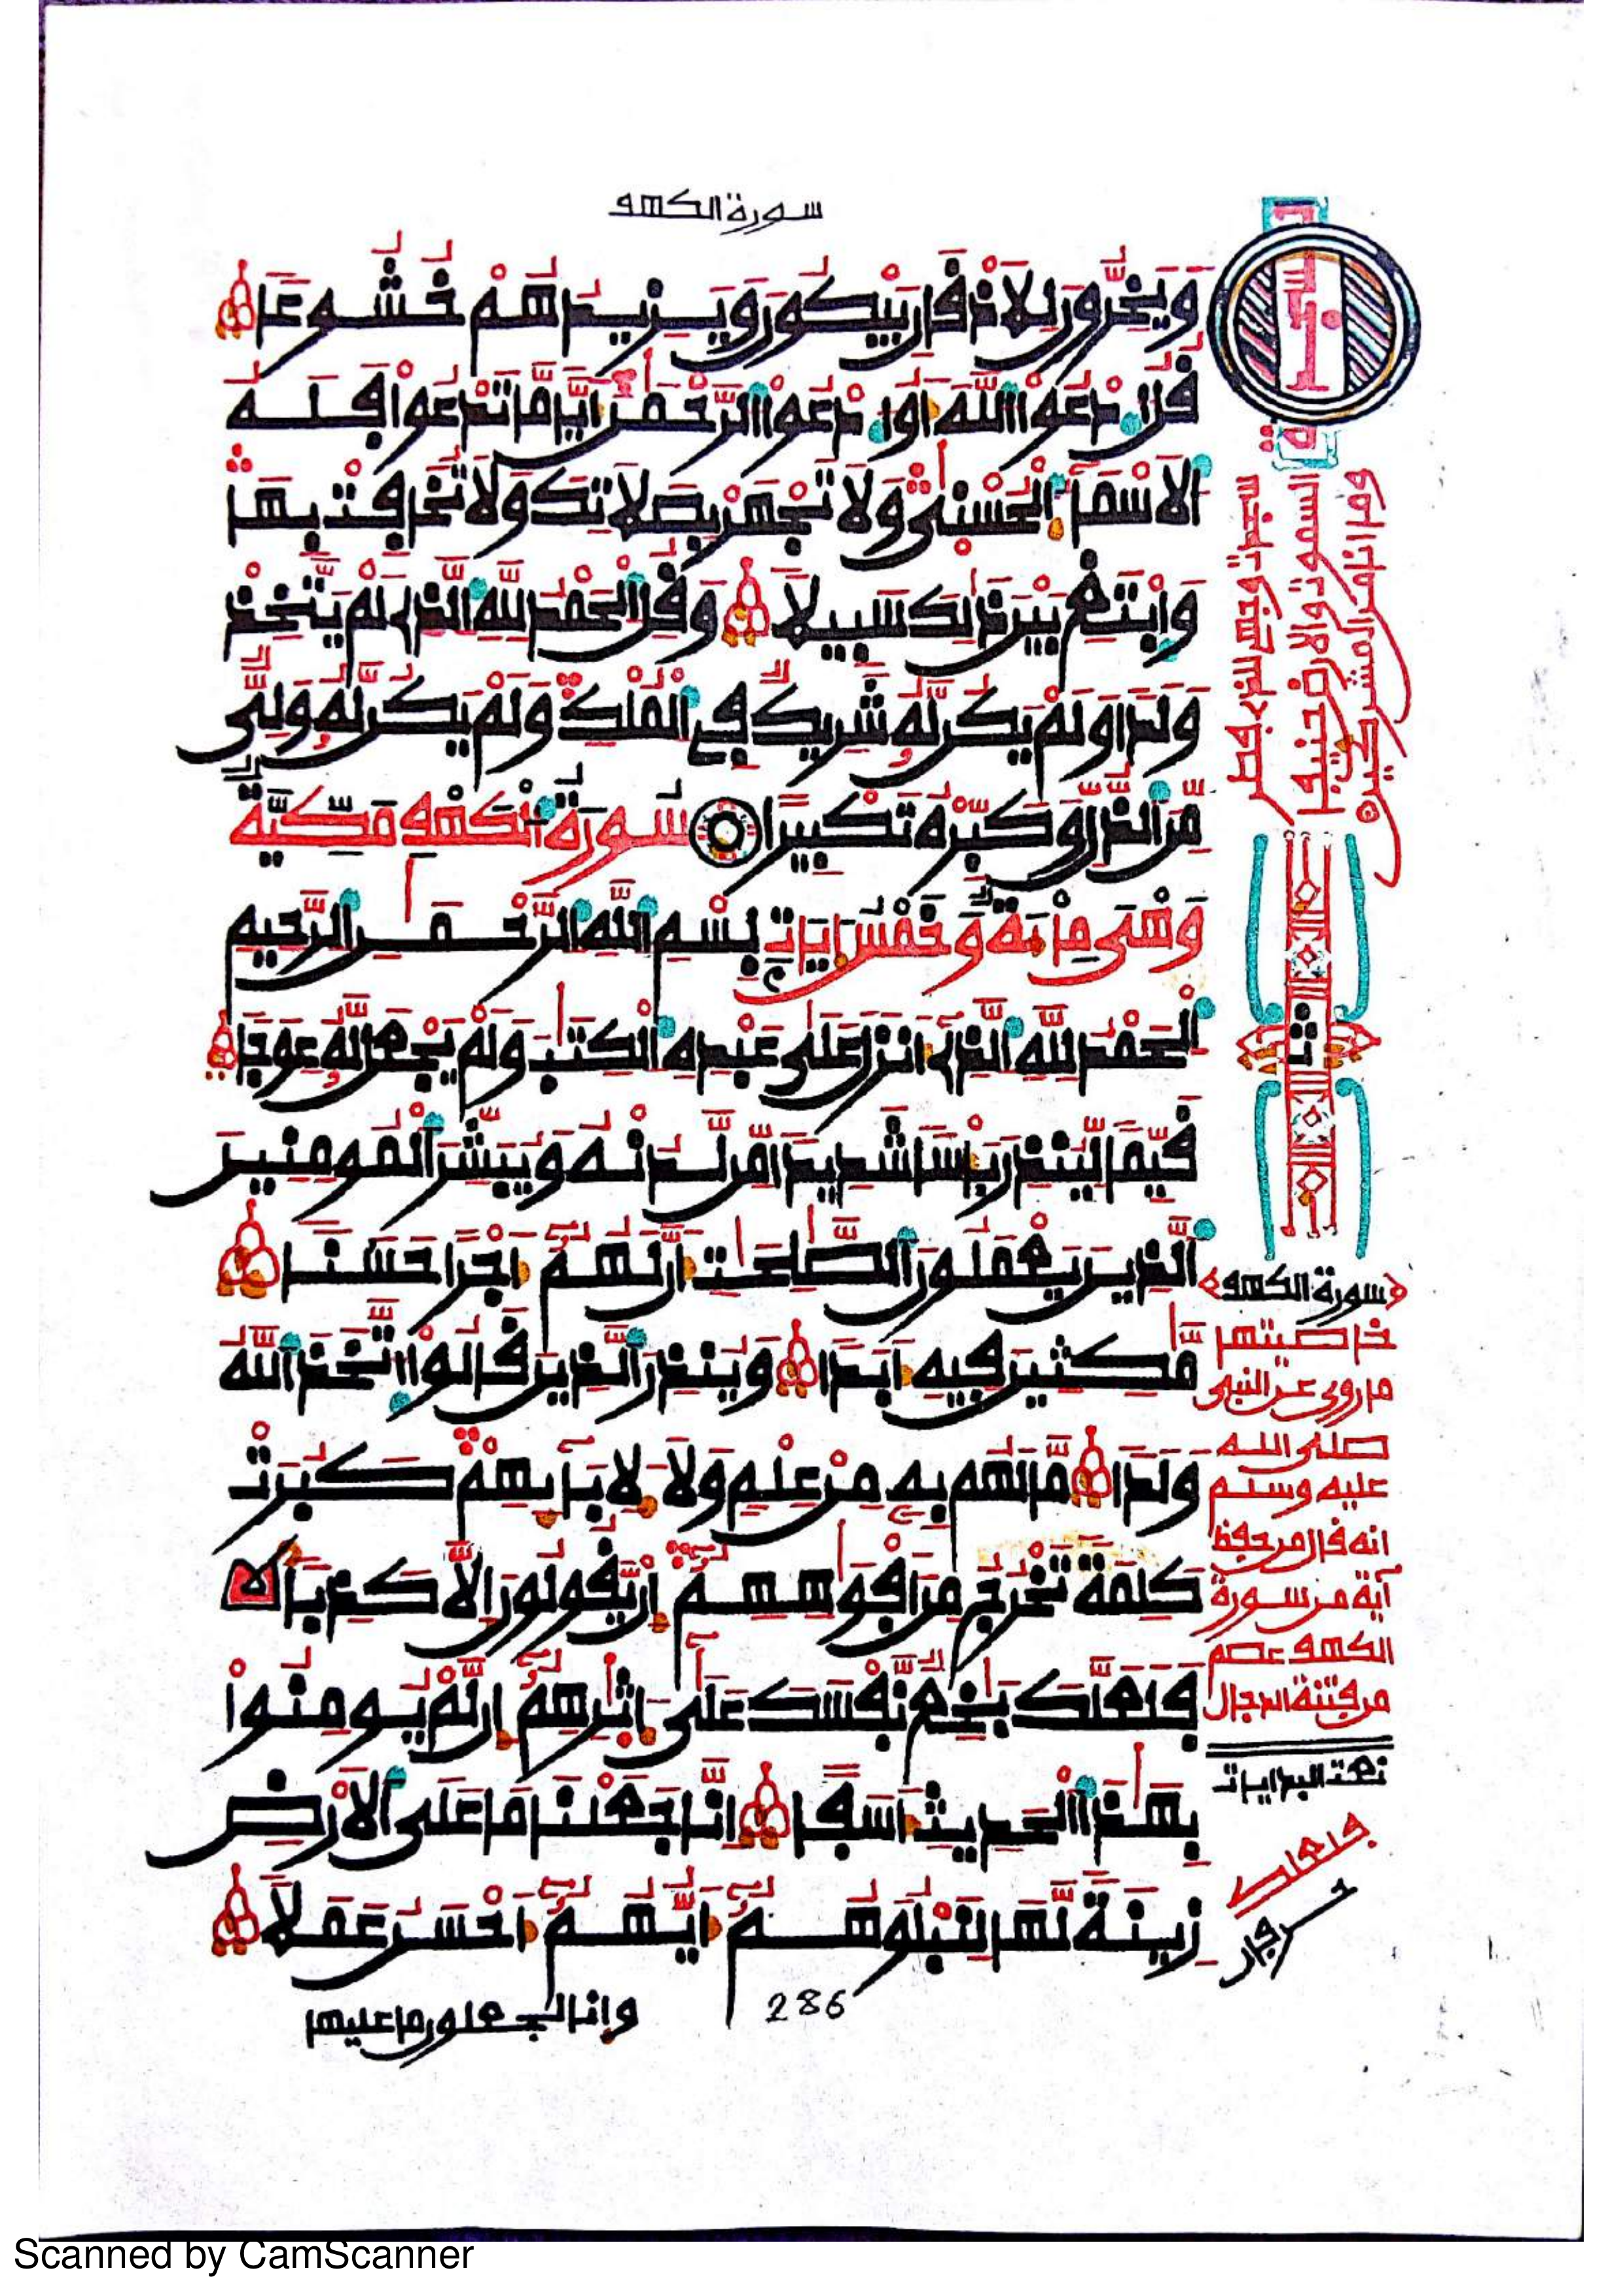 سورة الكهف
وَيَخِرُّونَ لِلَاذْقَانِ يَبْكُونَ وَيَزِيدُهُمْ خُشُوعًا
قُلُ ادْعُوا اللَّهَ أَوُ ادْعُوا الرَّحْمَٰنَ أَيًّا مَّا تَدْعُوا فَلَهُ
الَاسْمَآءُ الْحُسْنَىٰ وَلَا تَجْهَرْ بِصَلَاتِكَ وَلَا تُخَافِتْ بِهَا
وَابْتَغِ بَيْنَ ذَٰلِكَ سَبِيلًا وَقُلِ الْحَمْدُ لِلَّهِ الَّذِي لَمْ يَتَّخِذْ
وَلَدًا وَلَمْ يَكُن لَّهُ شَرِيكٌ فِي الْمُلْكِ وَلَمْ يَكُن لَّهُ وَلِيٌّ
مِّنَ الذُّلِّ وَكَبِّرْهُ تَكْبِيرًا سُورَةُ الْكَهْفِ مَكِّيَّةٌ
وَهْىَ مِائَةٌ وَخَمْسُ ءَايَاتٍ بِسْمِ اللَّهِ الرَّحْمَٰنِ الرَّحِيمِ
الْحَمْدُ لِلَّهِ الَّذِي أَنزَلَ عَلَىٰ عَبْدِهِ الْكِتَٰبَ وَلَمْ يَجْعَل لَّهُ عِوَجًا
قَيِّمًا لِّيُنذِرَ بَأْسًا شَدِيدًا مِّن لَّدُنْهُ وَيُبَشِّرَ الْمُومِنِينَ
الَّذِينَ يَعْمَلُونَ الصَّٰلِحَٰتِ أَنَّ لَهُمُ أَجْرًا حَسَنًا
مَّٰكِثِينَ فِيهِ أَبَدًا وَيُنذِرَ الَّذِينَ قَالُوا اتَّخَذَ اللَّهُ
وَلَدًا مَّا لَهُم بِهِ مِنْ عِلْمٍ وَلَا لِأَبَآئِهِمْ كَبُرَتْ
كَلِمَةً تَخْرُجُ مِنَ أَفْوَٰهِهِمُ إِن يَقُولُونَ إِلَّا كَذِبًا
فَلَعَلَّكَ بَٰخِعٌ نَّفْسَكَ عَلَىٰ ءَاثَٰرِهِمُ إِن لَّمْ يُومِنُوا
بِهَٰذَا الْحَدِيثِ أَسَفًا إِنَّا جَعَلْنَا مَا عَلَى الَارْضِ
زِينَةً لَّهَا لِنَبْلُوَهُمُ أَيُّهُمُ أَحْسَنُ عَمَلًا
وانا لجعلون ما عليها
286
سجدت وجهى للذى فطر
السموت والارض حنيفا
وما انا من المشركين
ثمن
سورة الكهف
خاصيتها
ما روى عن النبى
صلى الله
عليه وسلم
انه قال من حفظ
آية من سورة
الكهف عصم
من فتنة الدجال
Scanned by CamScanner